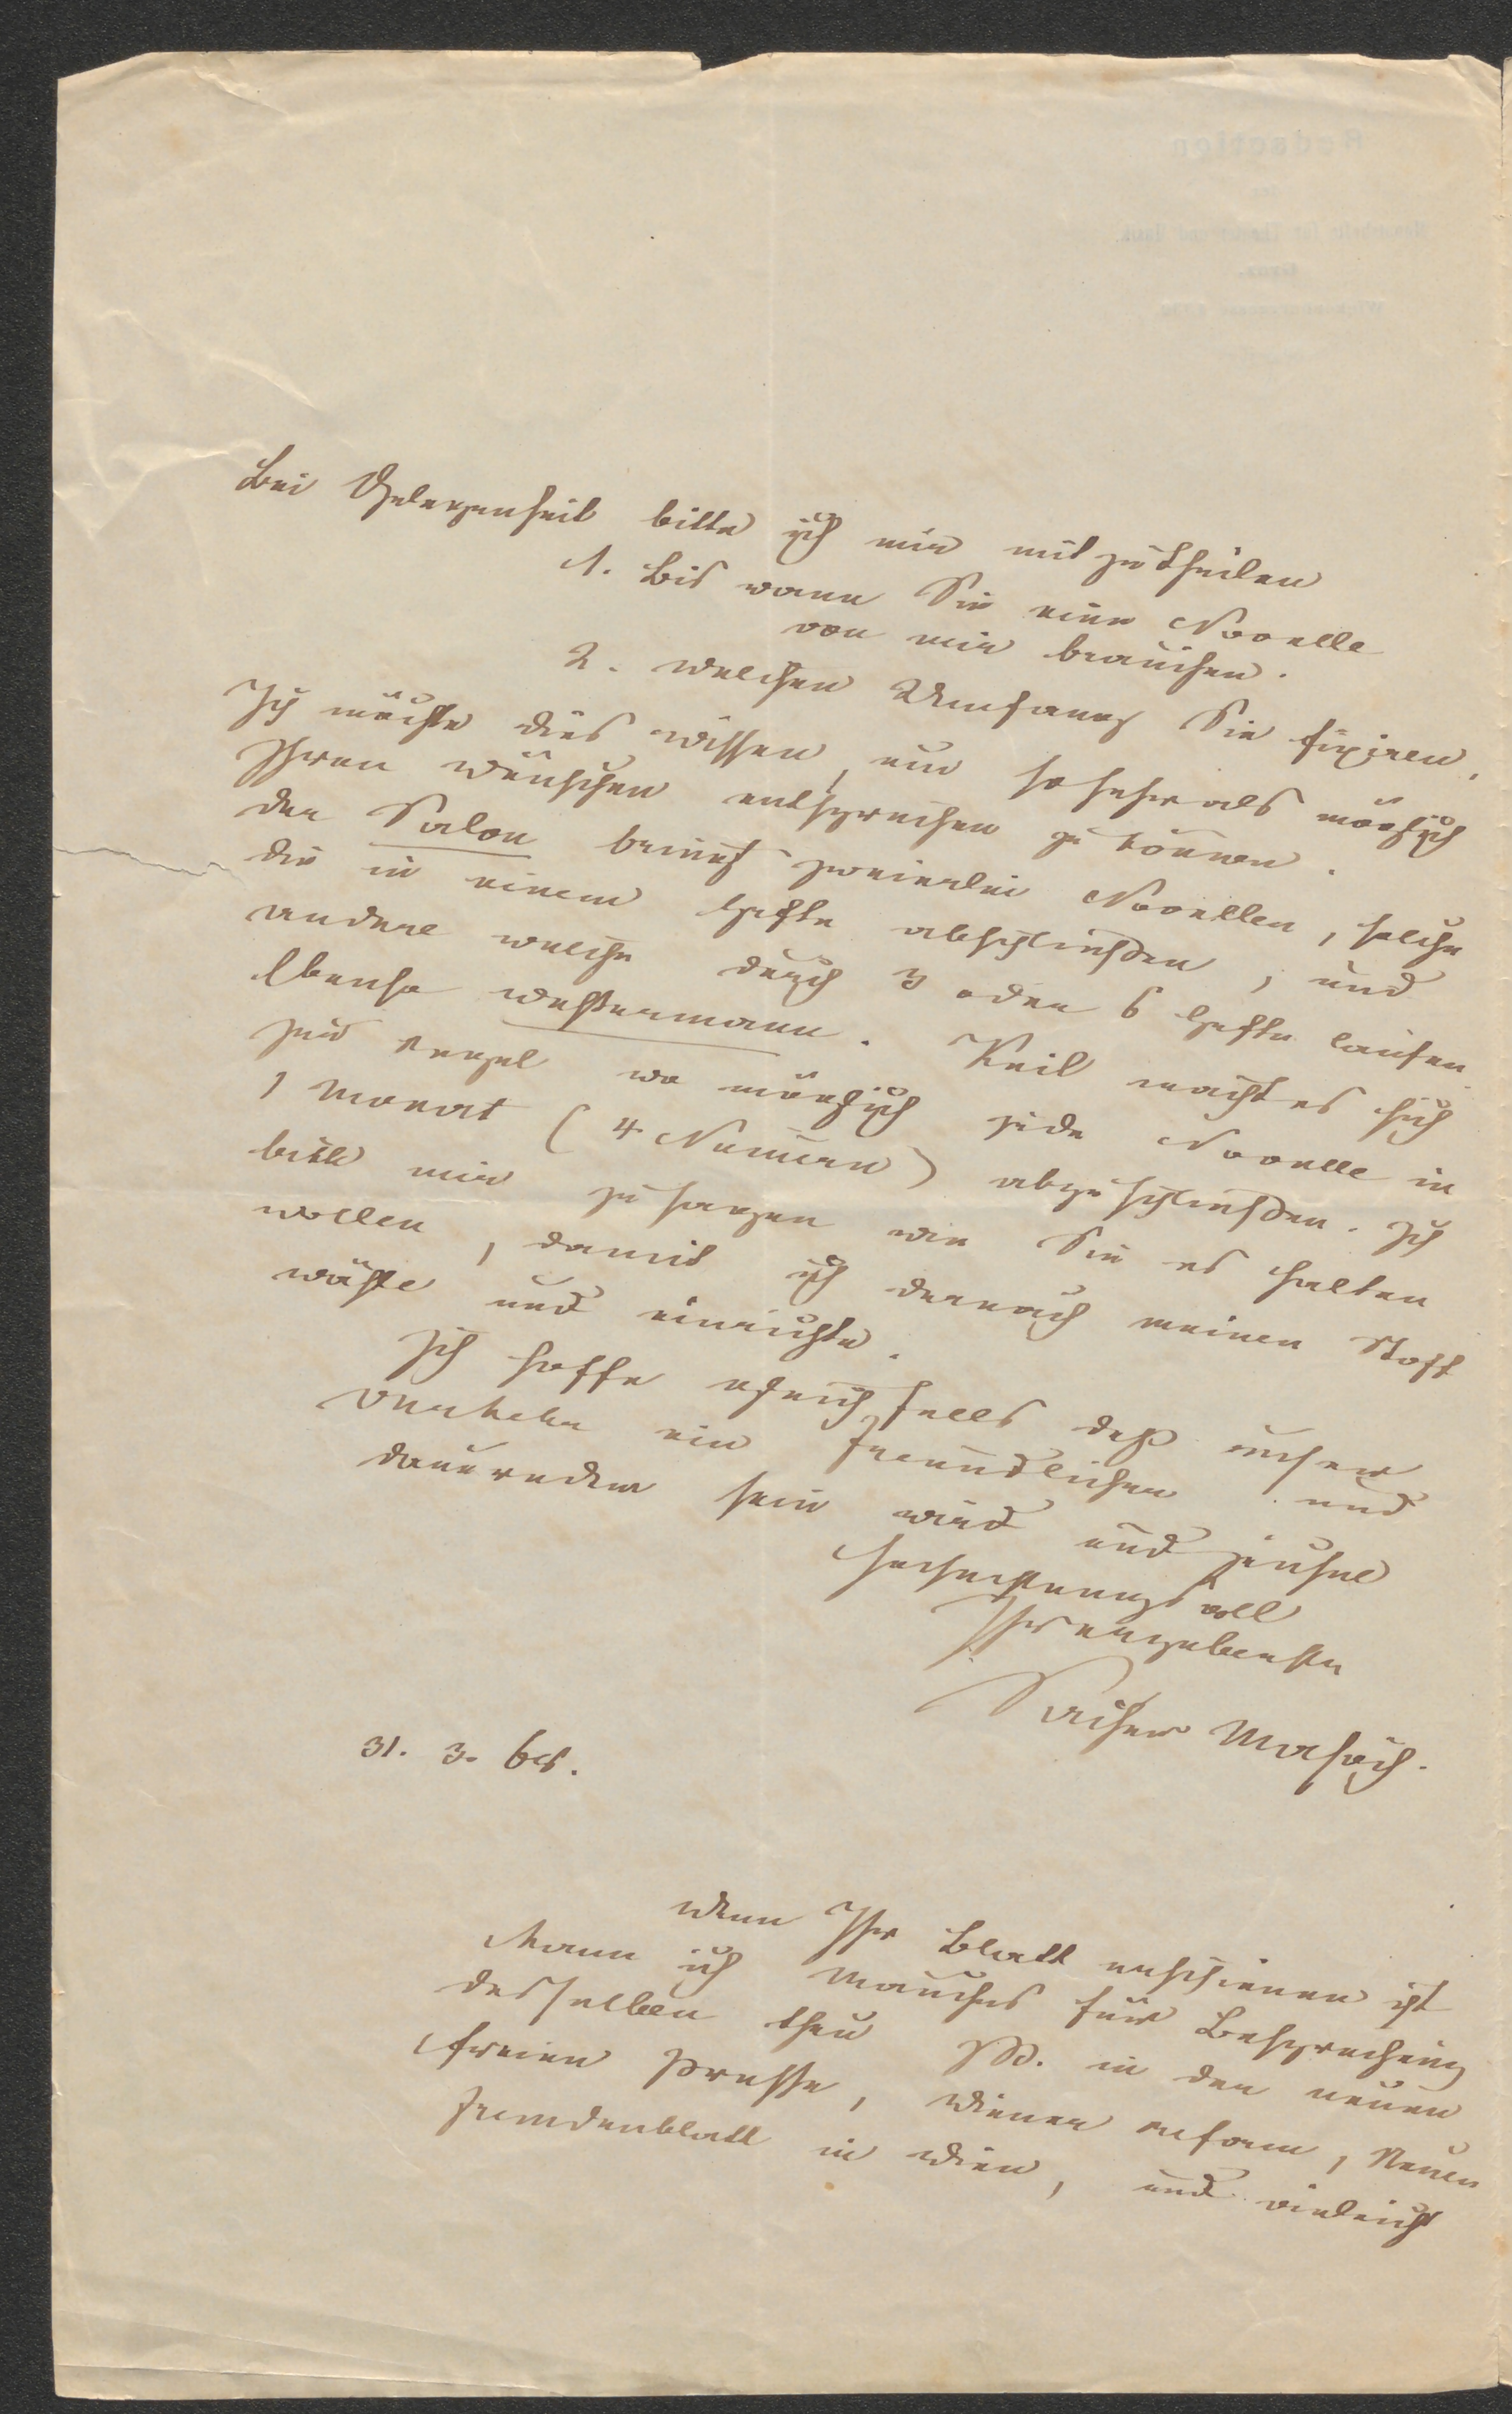 Bei Gelegenheit bitte ich mir mitzutheilen
1. Bis wann Sie eine Novelle
von mir brauchen.
2. welchen Umfang Sie fixiren.
Ich möchte dies wissen, um so sehr als möglich
Ihren Wünschen entsprechen zu können.
Der Salon bringt zweierlei Novellen, solche
die in einem Hefte abschließen, und
andere welche durch 3 oder 6 Hefte laufen.
Ebenso Westermann. Keil macht es sich
zur Regel wo möglich jede Novelle in
1 Monat (4 Numern) abzuschließen. Ich
bitte mir zu sagen wie Sie es halten
wollen, damit ich darnach meinen Stoff
wähle und einrichte.
Ich hoffe gleichfalls daß unser
Verkehr ein freundlicher und
dauernder sein wird und zeichne
hochachtungsvoll
Ihr ergebenster
Sacher Masoch.
31. 3. 68.
Wenn Ihr Blatt erschienen ist
kann ich manches für Besprechung
desselben thun z.B. in der neuen
freien Presse, Wiener Reform, Neuen
Fremdenblatt in Wien, und vieleicht